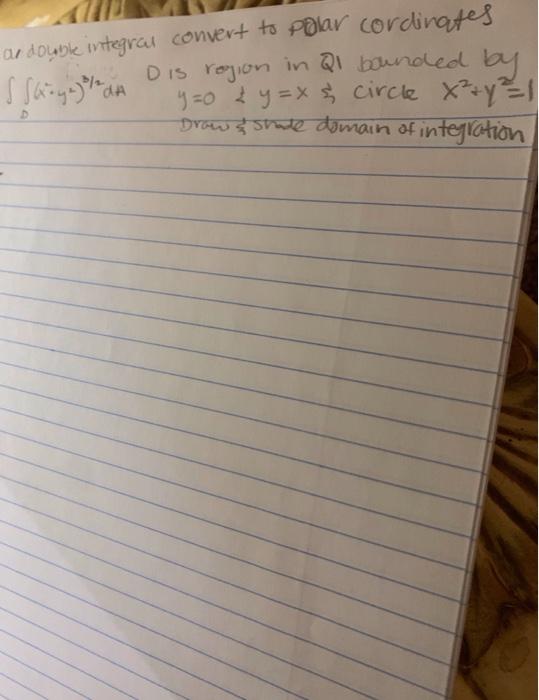 a double integral convert to polar cordinates
∫∫(x²+y²)^3/2 dA D is region in Q1 bounded by
D y=0 & y=x & circle x²+y²=1
Draw & shade domain of integration